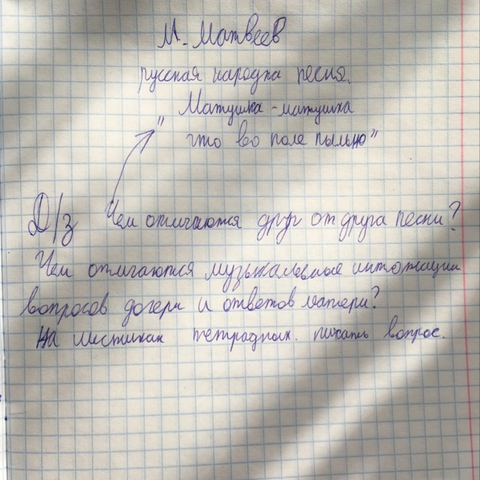 М. Матвеев
русская народна песня.
"Матушка-матушка
что во поле пыльно"
Д/з Чем отличаются друг от друга песни?
Чем отличаются музыкальные интонации
вопросов дочери и ответов матери?
На листиках тетрадных. писать вопрос.